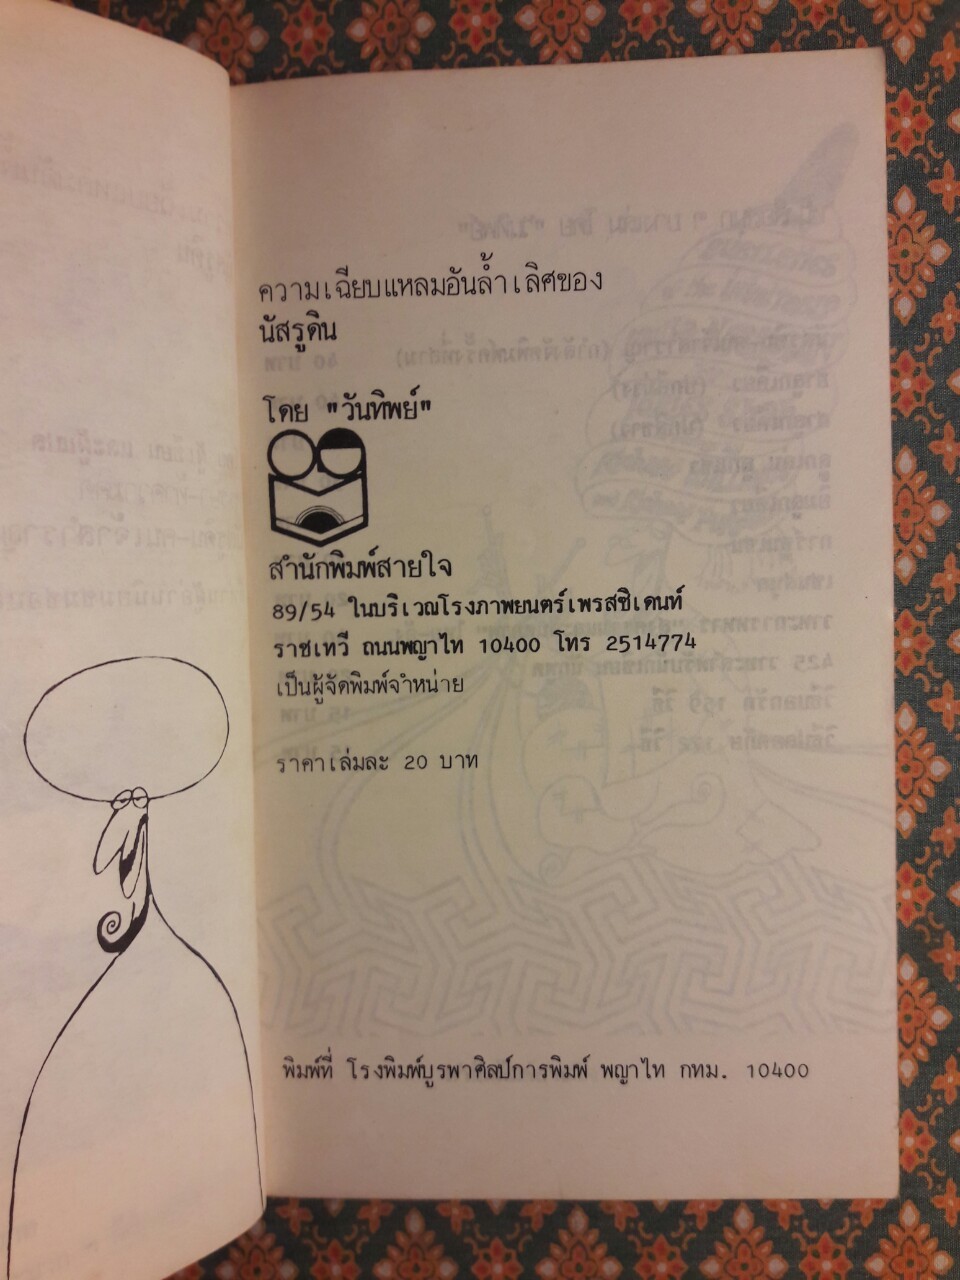 ความเฉียบแหลมอันล้ำเลิศของ
นัสรูดิน
โดย "วันทิพย์"
สำนักพิมพ์สายใจ
89/54 ในบริเวณโรงภาพยนตร์เพรสซิเดนท์
ราชเทวี ถนนพญาไท 10400 โทร 2514774
เป็นผู้จัดพิมพ์จำหน่าย
ราคาเล่มละ 20 บาท
พิมพ์ที่ โรงพิมพ์บูรพาศิลป์การพิมพ์ พญาไท กทม. 10400